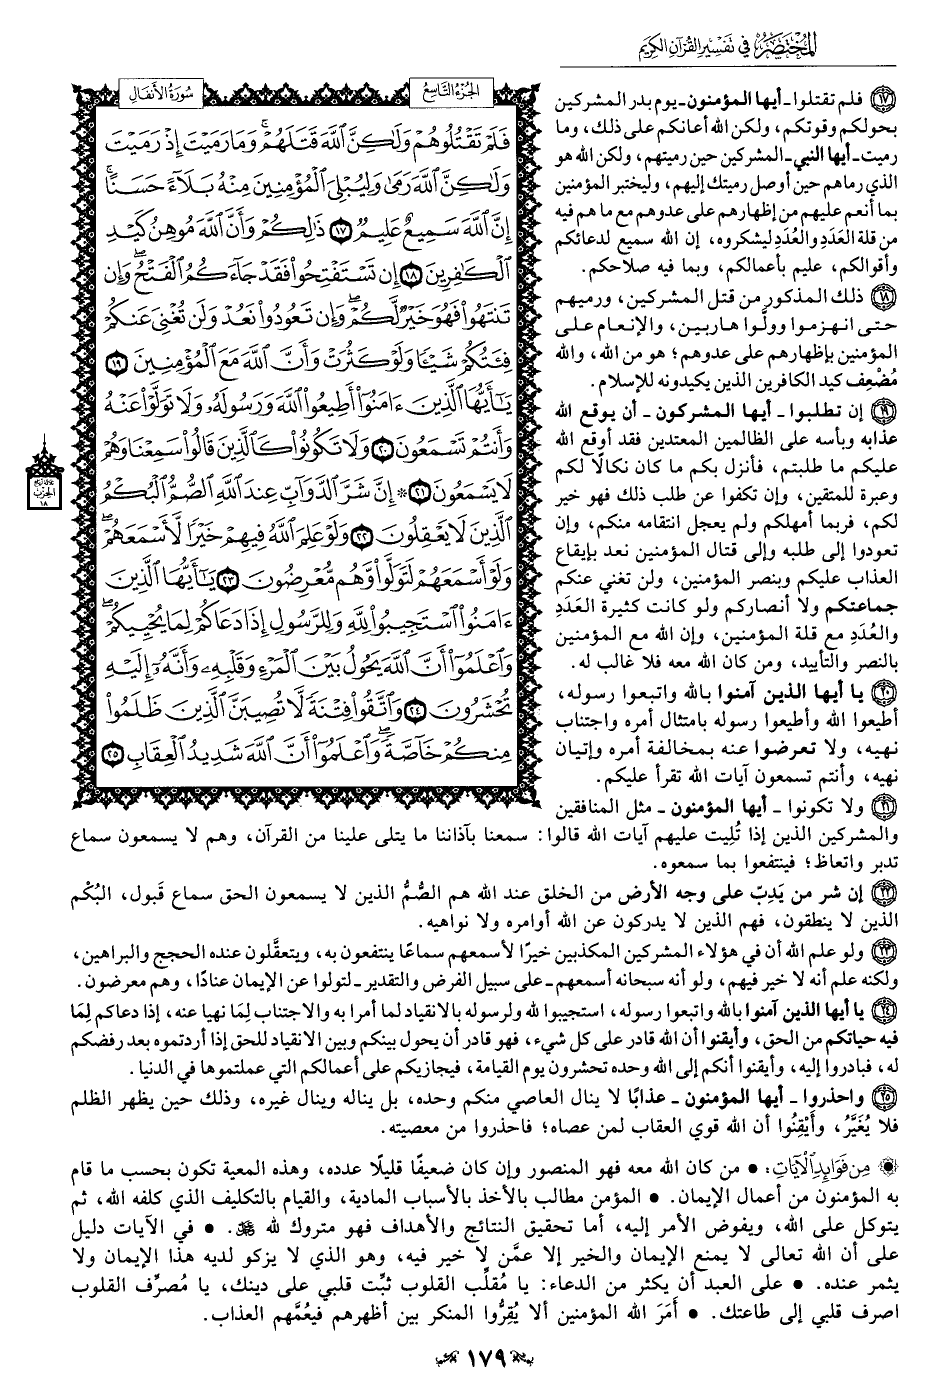 المُخْتَصَرُ في تَفْسِيرِ القُرْآنِ الكَرِيمِ
الجُزْءُ التَّاسِعُ
سُورَةُ الأَنفَالِ
فَلَمْ تَقْتُلُوهُمْ وَلَٰكِنَّ ٱللَّهَ قَتَلَهُمْ ۚ وَمَا رَمَيْتَ إِذْ رَمَيْتَ
وَلَٰكِنَّ ٱللَّهَ رَمَىٰ وَلِيُبْلِيَ ٱلْمُؤْمِنِينَ مِنْهُ بَلَآءً حَسَنًا ۚ
إِنَّ ٱللَّهَ سَمِيعٌ عَلِيمٌ ١٧ ذَٰلِكُمْ وَأَنَّ ٱللَّهَ مُوهِنُ كَيْدِ
ٱلْكَٰفِرِينَ ١٨ إِن تَسْتَفْتِحُوا۟ فَقَدْ جَآءَكُمُ ٱلْفَتْحُ ۖ وَإِن
تَنتَهُوا۟ فَهُوَ خَيْرٌ لَّكُمْ ۖ وَإِن تَعُودُوا۟ نَعُدْ وَلَن تُغْنِيَ عَنكُمْ
فِئَتُكُمْ شَيْـًٔا وَلَوْ كَثُرَتْ وَأَنَّ ٱللَّهَ مَعَ ٱلْمُؤْمِنِينَ ١٩
يَٰٓأَيُّهَا ٱلَّذِينَ ءَامَنُوٓا۟ أَطِيعُوا۟ ٱللَّهَ وَرَسُولَهُۥ وَلَا تَوَلَّوْا۟ عَنْهُ
وَأَنتُمْ تَسْمَعُونَ ٢٠ وَلَا تَكُونُوا۟ كَٱلَّذِينَ قَالُوا۟ سَمِعْنَا وَهُمْ
لَا يَسْمَعُونَ ٢١ ۞ إِنَّ شَرَّ ٱلدَّوَآبِّ عِندَ ٱللَّهِ ٱلصُّمُّ ٱلْبُكْمُ
ٱلَّذِينَ لَا يَعْقِلُونَ ٢٢ وَلَوْ عَلِمَ ٱللَّهُ فِيهِمْ خَيْرًا لَّأَسْمَعَهُمْ ۖ
وَلَوْ أَسْمَعَهُمْ لَتَوَلَّوا۟ وَّهُم مُّعْرِضُونَ ٢٣ يَٰٓأَيُّهَا ٱلَّذِينَ
ءَامَنُوا۟ ٱسْتَجِيبُوا۟ لِلَّهِ وَلِلرَّسُولِ إِذَا دَعَاكُمْ لِمَا يُحْيِيكُمْ ۖ
وَٱعْلَمُوٓا۟ أَنَّ ٱللَّهَ يَحُولُ بَيْنَ ٱلْمَرْءِ وَقَلْبِهِۦ وَأَنَّهُۥٓ إِلَيْهِ
تُحْشَرُونَ ٢٤ وَٱتَّقُوا۟ فِتْنَةً لَّا تُصِيبَنَّ ٱلَّذِينَ ظَلَمُوا۟
مِنكُمْ خَآصَّةً ۖ وَٱعْلَمُوٓا۟ أَنَّ ٱللَّهَ شَدِيدُ ٱلْعِقَابِ ٢٥
الحزب
١٨
١٧ فلم تقتلوا ـ أيها المؤمنون ـ يوم بدر المشركين
بحولكم وقوتكم، ولكن الله أعانكم على ذلك، وما
رميت ـ أيها النبي ـ المشركين حين رميتهم، ولكن الله هو
الذي رماهم حين أوصل رميتك إليهم، وليختبر المؤمنين
بما أنعم عليهم من إظهارهم على عدوهم مع ما هم فيه
من قلة العَدَدِ والعُدَدِ ليشكروه، إن الله سميع لدعائكم
وأقوالكم، عليم بأعمالكم، وبما فيه صلاحكم.
١٨ ذلك المذكور من قتل المشركين، ورميهم
حتى انهزموا وولَّوا هاربين، والإنعام على
المؤمنين بإظهارهم على عدوهم؛ هو من الله، والله
مُضْعِف كيد الكافرين الذين يكيدونه للإسلام.
١٩ إن تطلبوا ـ أيها المشركون ـ أن يوقع الله
عذابه وبأسه على الظالمين المعتدين فقد أوقع الله
عليكم ما طلبتم، فأنزل بكم ما كان نكالًا لكم
وعبرة للمتقين، وإن تكفوا عن طلب ذلك فهو خير
لكم، فربما أمهلكم ولم يعجل انتقامه منكم، وإن
تعودوا إلى طلبه وإلى قتال المؤمنين نعد بإيقاع
العذاب عليكم وبنصر المؤمنين، ولن تغني عنكم
جماعتكم ولا أنصاركم ولو كانت كثيرة العَدَدِ
والعُدَدِ مع قلة المؤمنين، وإن الله مع المؤمنين
بالنصر والتأييد، ومن كان الله معه فلا غالب له.
٢٠ يا أيها الذين آمنوا بالله واتبعوا رسوله،
أطيعوا الله وأطيعوا رسوله بامتثال أمره واجتناب
نهيه، ولا تعرضوا عنه بمخالفة أمره وإتيان
نهيه، وأنتم تسمعون آيات الله تقرأ عليكم.
٢١ ولا تكونوا ـ أيها المؤمنون ـ مثل المنافقين
والمشركين الذين إذا تُلِيت عليهم آيات الله قالوا: سمعنا بآذاننا ما يتلى علينا من القرآن، وهم لا يسمعون سماع
تدبر واتعاظ؛ فينتفعوا بما سمعوه.
٢٢ إن شر من يَدِبّ على وجه الأرض من الخلق عند الله هم الصُّمُّ الذين لا يسمعون الحق سماع قَبول، البُكْم
الذين لا ينطقون، فهم الذين لا يدركون عن الله أوامره ولا نواهيه.
٢٣ ولو علم الله أن في هؤلاء المشركين المكذبين خيرًا لأسمعهم سماعًا ينتفعون به، ويتعقَّلون عنده الحجج والبراهين،
ولكنه علم أنه لا خير فيهم، ولو أنه سبحانه أسمعهم ـ على سبيل الفرض والتقدير ـ لتولوا عن الإيمان عنادًا، وهم معرضون.
٢٤ يا أيها الذين آمنوا بالله واتبعوا رسوله، استجيبوا لله ولرسوله بالانقياد لما أمرا به والاجتناب لِمَا نهيا عنه، إذا دعاكم لِمَا
فيه حياتكم من الحق، وأيقنوا أن الله قادر على كل شيء، فهو قادر أن يحول بينكم وبين الانقياد للحق إذا أردتموه بعد رفضكم
له، فبادروا إليه، وأيقنوا أنكم إلى الله وحده تحشرون يوم القيامة، فيجازيكم على أعمالكم التي عملتموها في الدنيا.
٢٥ واحذروا ـ أيها المؤمنون ـ عذابًا لا ينال العاصي منكم وحده، بل يناله وينال غيره، وذلك حين يظهر الظلم
فلا يُغَيَّرُ، وأَيْقِنُوا أن الله قوي العقاب لمن عصاه؛ فاحذروا من معصيته.
مِن فَوَائِدِ الآيَاتِ: • من كان الله معه فهو المنصور وإن كان ضعيفًا قليلًا عدده، وهذه المعية تكون بحسب ما قام
به المؤمنون من أعمال الإيمان. • المؤمن مطالب بالأخذ بالأسباب المادية، والقيام بالتكليف الذي كلفه الله، ثم
يتوكل على الله، ويفوض الأمر إليه، أما تحقيق النتائج والأهداف فهو متروك لله ﷻ. • في الآيات دليل
على أن الله تعالى لا يمنع الإيمان والخير إلا عمَّن لا خير فيه، وهو الذي لا يزكو لديه هذا الإيمان ولا
يثمر عنده. • على العبد أن يكثر من الدعاء: يا مُقلِّب القلوب ثبِّت قلبي على دينك، يا مُصرِّف القلوب
اصرف قلبي إلى طاعتك. • أَمَرَ الله المؤمنين ألا يُقِرُّوا المنكر بين أظهرهم فيعُمَّهم العذاب.
١٧٩